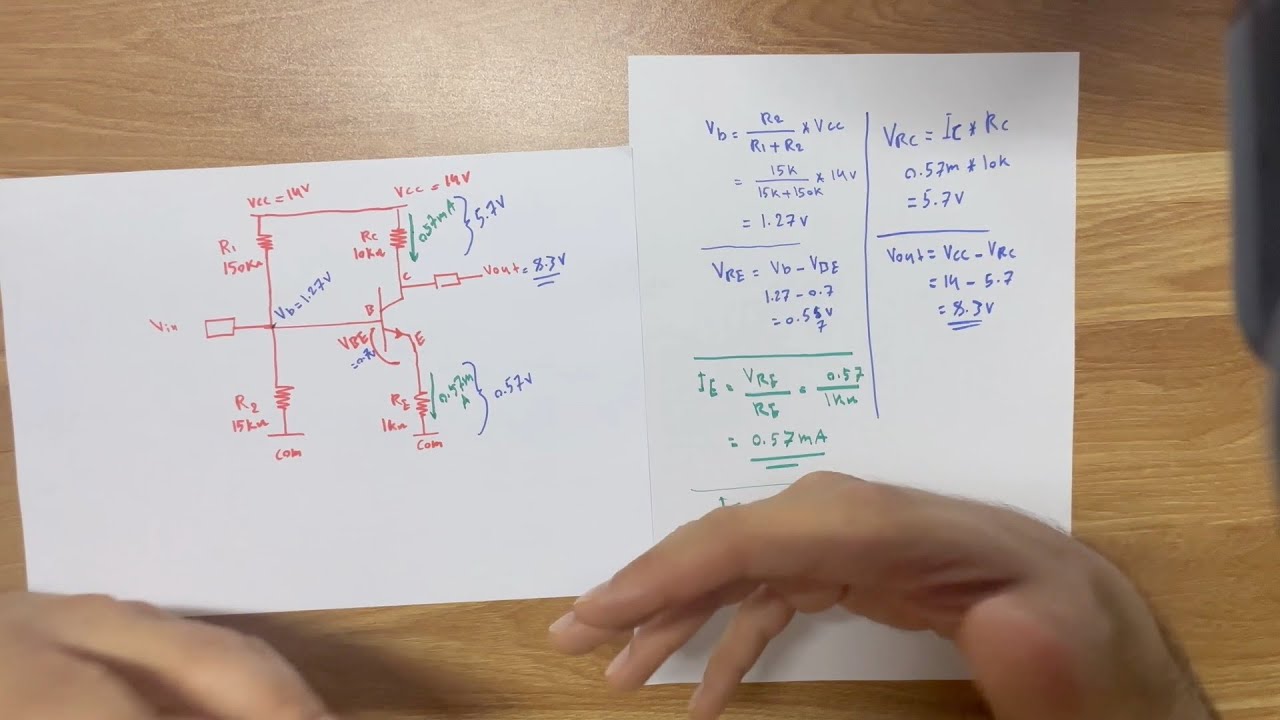 Vcc = 14V
Vcc = 14V
R1
150kΩ
Rc
10kΩ
0.57mA
5.7V
C
Vout = 8.3V
Vb = 1.27V
Vin
B
VBE
= 0.7V
E
R2
15kΩ
com
RE
1kΩ
com
0.57m
A
0.57V
Vb = R2
R1 + R2
* Vcc
= 15k
15k+150k
* 14V
= 1.27V
VRE = Vb - VBE
1.27 - 0.7
= 0.55V
7
IE = VRE
RE
= 0.57
1kΩ
= 0.57mA
VRC = IC * RC
0.57m * 10k
= 5.7V
Vout = Vcc - VRC
= 14 - 5.7
= 8.3V